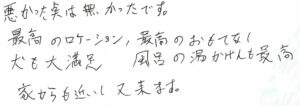 悪かった実は無かったです。
最高のロケーション,最高のおもてなし
犬も大満足 風呂の湯かげんも最高
家からも近いし又来ます。